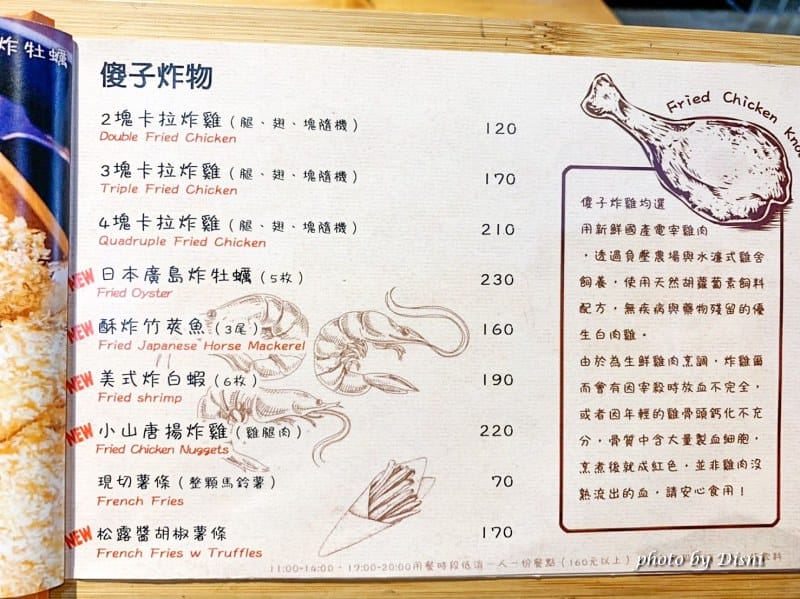 炸牡蠣
傻子炸物
2塊卡拉炸雞（腿、翅、塊隨機） 120
Double Fried Chicken
3塊卡拉炸雞（腿、翅、塊隨機） 170
Triple Fried Chicken
4塊卡拉炸雞（腿、翅、塊隨機） 210
Quadruple Fried Chicken
NEW 日本廣島炸牡蠣（5枚） 230
Fried Oyster
NEW 酥炸竹莢魚（3尾） 160
Fried Japanese Horse Mackerel
NEW 美式炸白蝦（6枚） 190
Fried shrimp
NEW 小山唐揚炸雞（雞腿肉） 220
Fried Chicken Nuggets
現切薯條（整顆馬鈴薯） 70
French Fries
NEW 松露醬胡椒薯條 170
French Fries w Truffles
11:00-14:00、17:00-20:00用餐時段低消一人一份餐點（160元以上）
Fried Chicken
傻子炸雞均選
用新鮮國產電宰雞肉
，透過負壓農場與水濂式雞舍
飼養，使用天然胡蘿蔔素飼料
配方，無疾病與藥物殘留的優
生白肉雞。
由於為生鮮雞肉烹調，炸雞爾
而會有因宰殺時放血不完全，
或者因年輕的雞骨頭鈣化不充
分，骨質中含大量製血細胞，
烹煮後就成紅色，並非雞肉沒
熟流出的血，請安心食用！
photo by Dishi